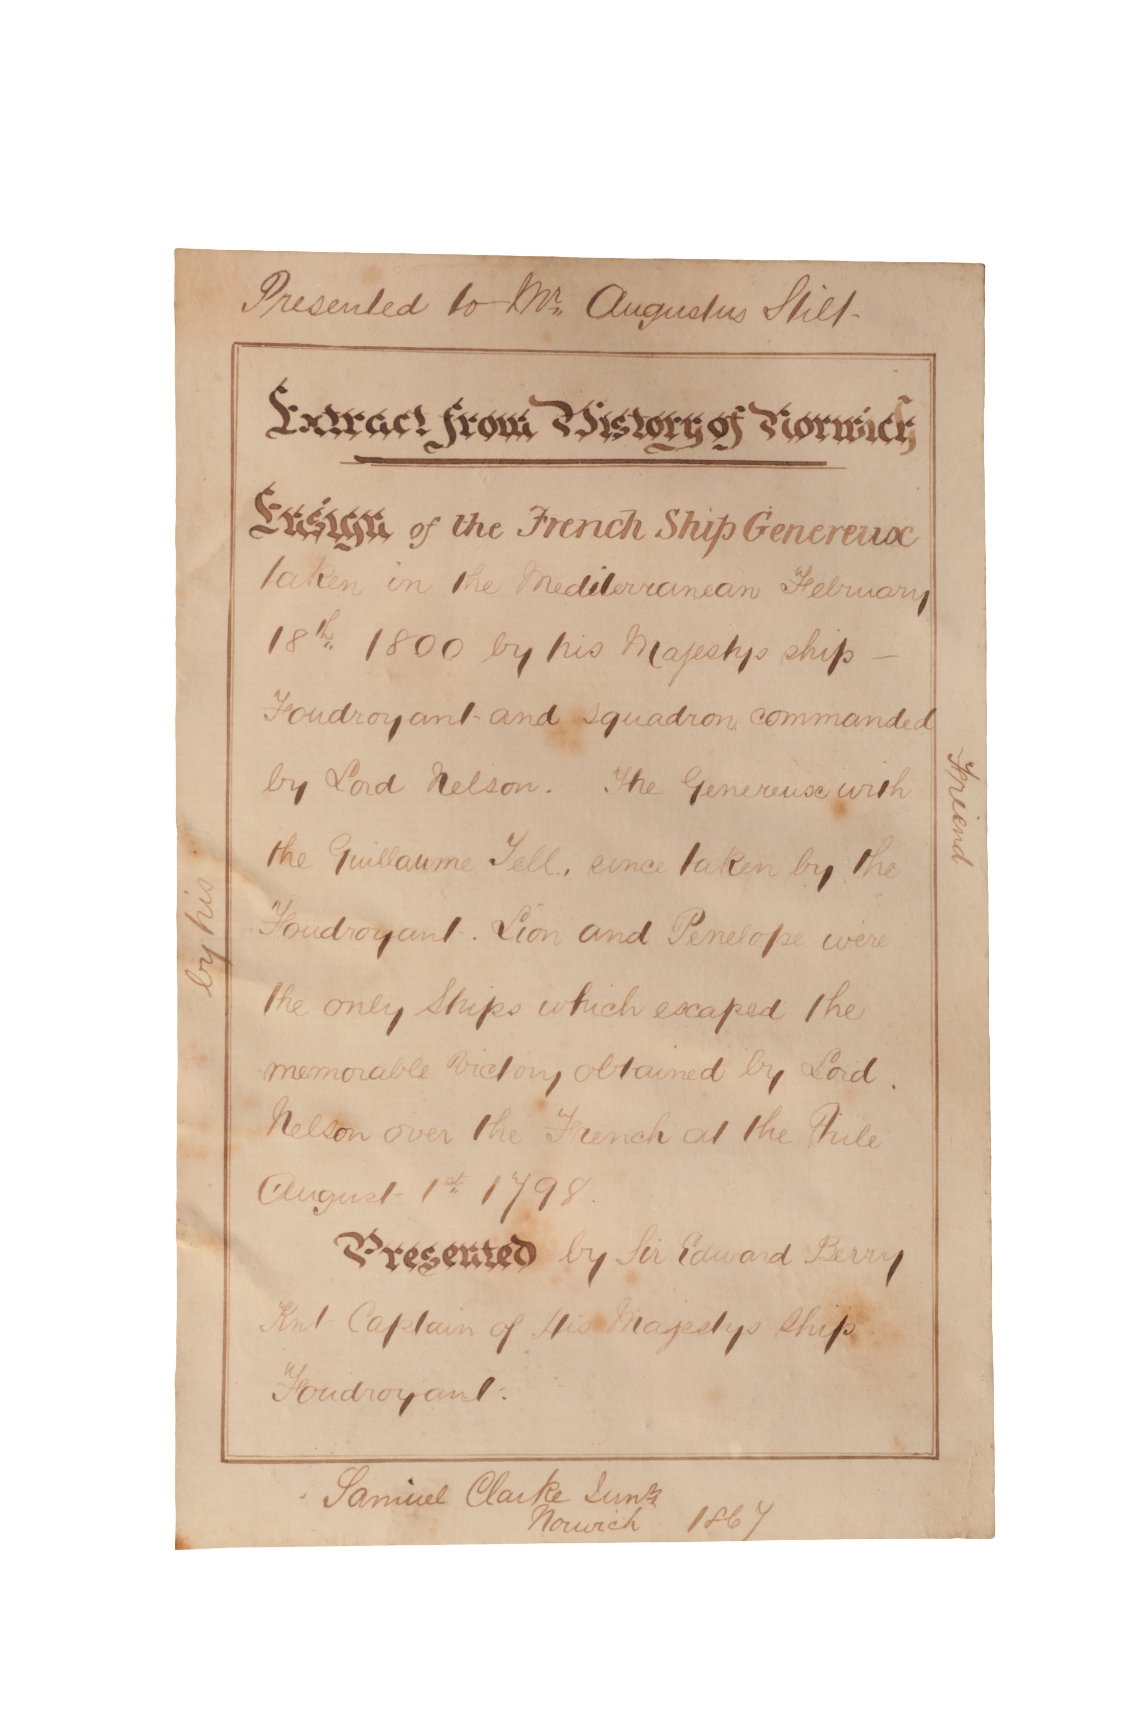 Presented to Mr. Augustus Stilt
Extract from History of Norwich
Ensign of the French Ship Genereux
taken in the Mediterranean February
18th. 1800 by his Majestys ship –
Foudroyant and squadron commanded
by Lord Nelson. The Genereux with
the Guillaume Tell., since taken by the
Foudroyant. Lion and Penelope were
the only Ships which escaped the
memorable Victory obtained by Lord
Nelson over the French at the Nile
August 1st 1798.
Presented by Sir Edward Berry
Knt Captain of His Majestys Ship
Foudroyant.
by his
Friend
Samuel Clarke Junr.
Norwich 1867